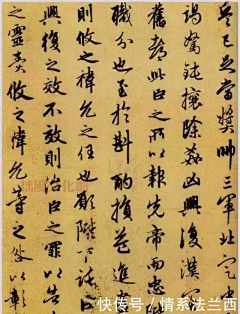 兵已足當獎帥三軍北定中
竭駑鈍攘除姦凶興復漢
舊都此臣之所以報先帝而忠
職分也至於斟酌損益進
則攸之禕允之任也願陛下託臣
興復之效不效則治臣之罪以告
之靈責攸之禕允等之咎以彰
快传号/情系法兰西